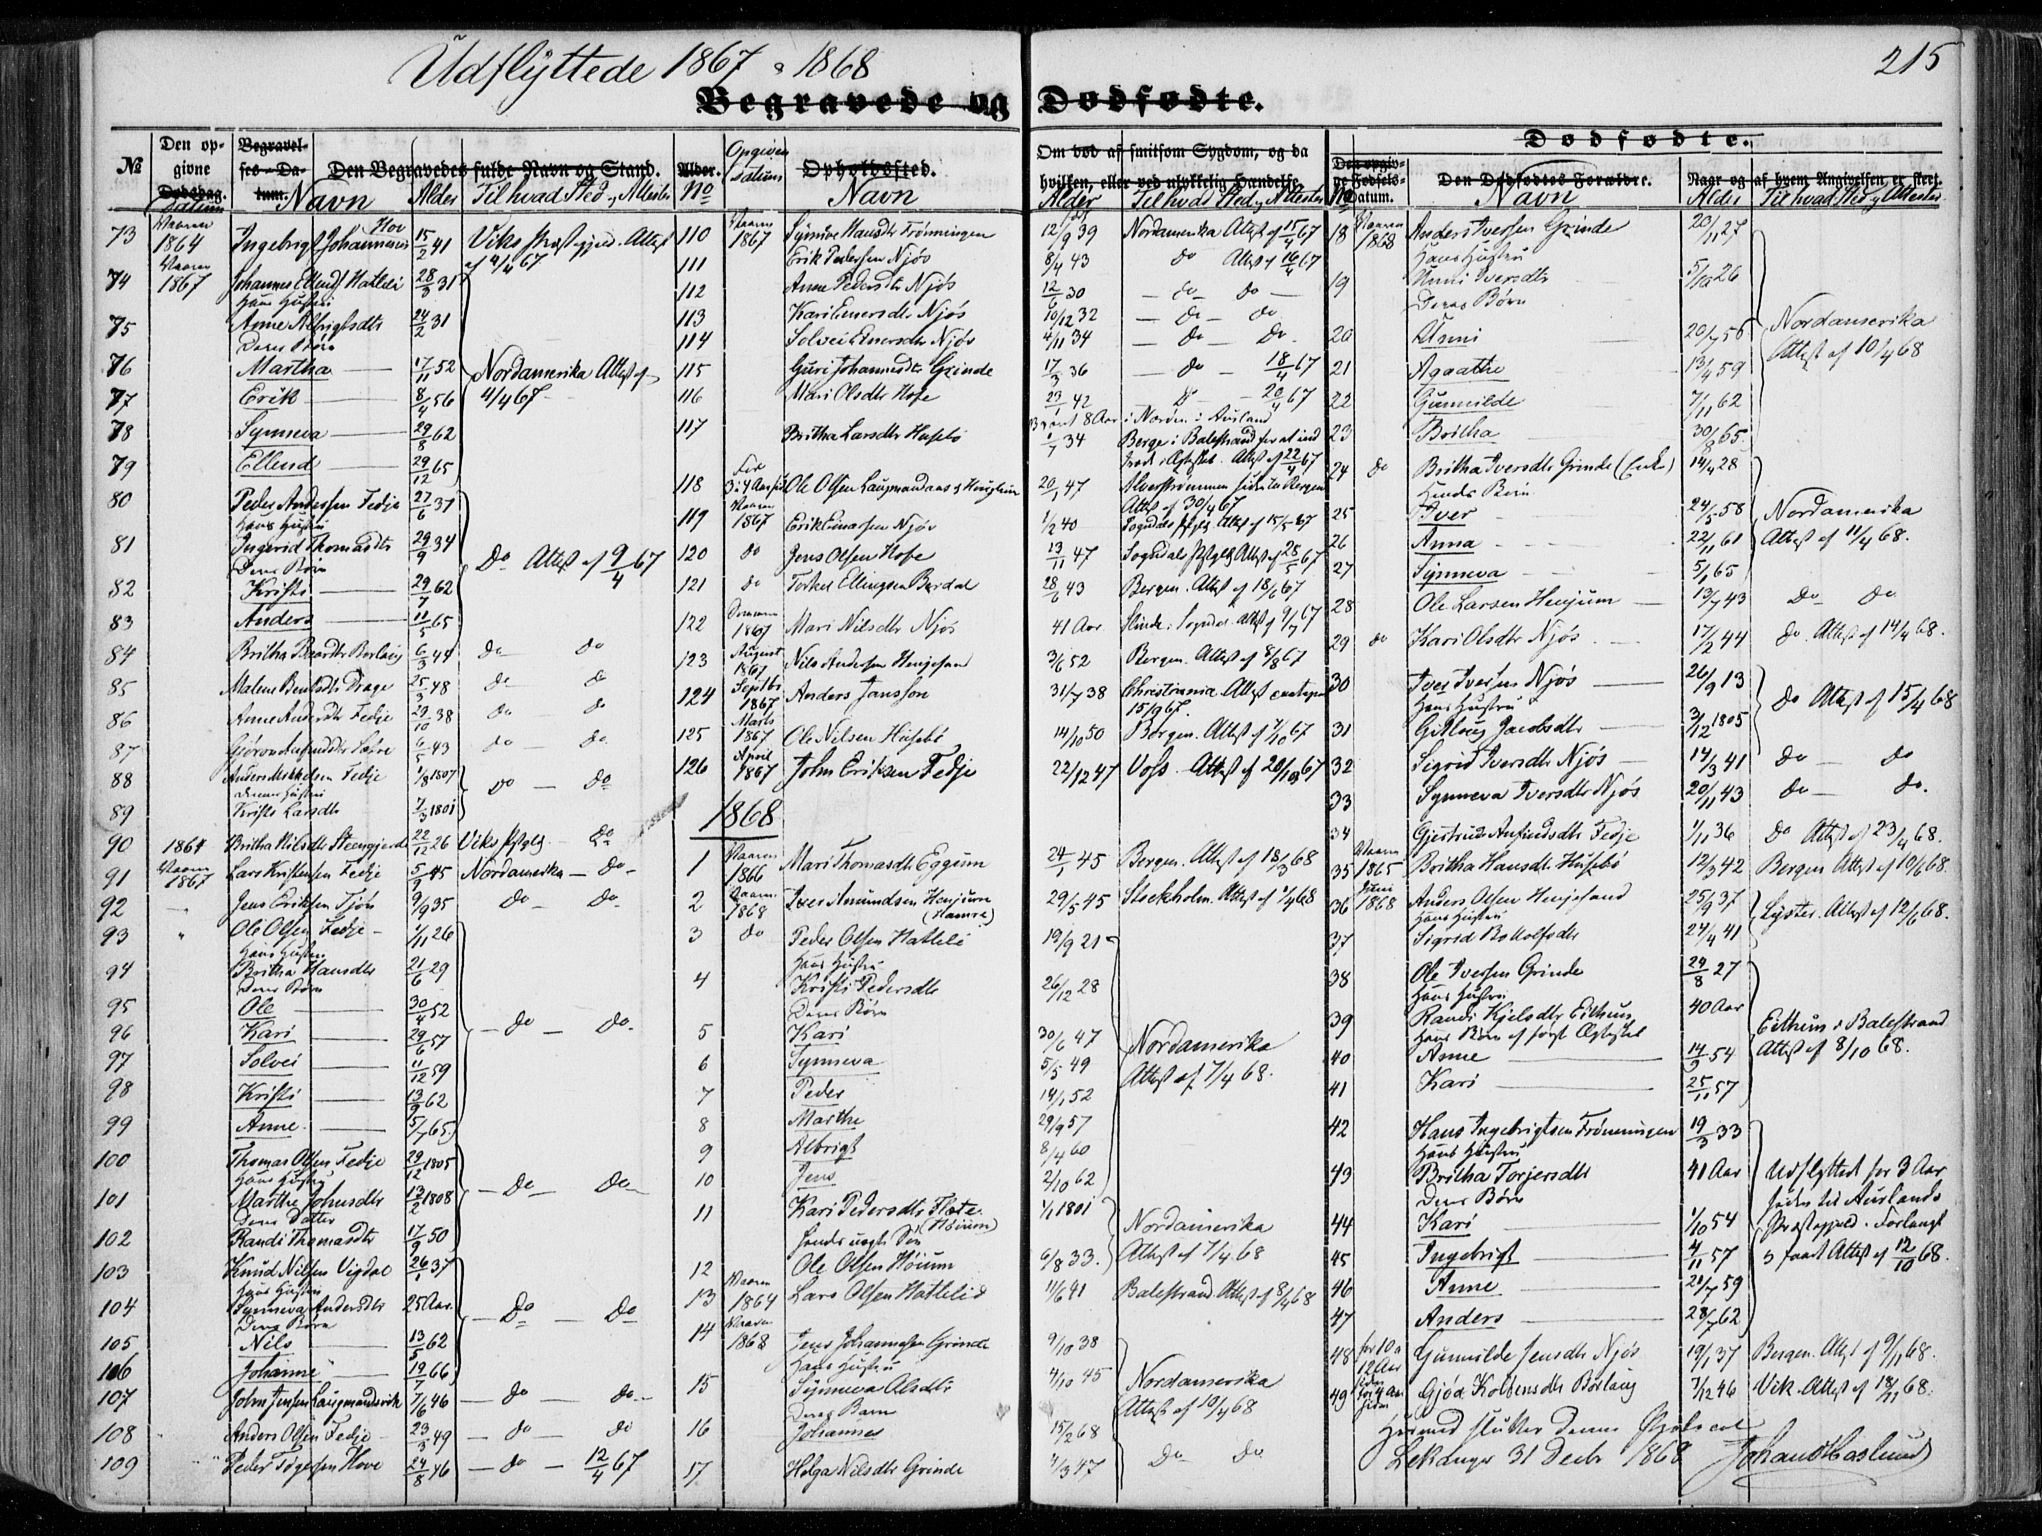 Udflyttede 1867 & 1868
215
Begravede og Dødfødte.
№
Den opgivne Dødsdag. datum
Begravelses-Datum.
Den Begravedes fulde Navn og Stand.
Alder.
Opgiven datum
Opholdssted.
Navn Alder Til hvad Sted, Attester
No Navn
Om død af smitsom Sygdom, og da
hvilken, eller ved ulykkelig Hændelse.
Alder Til hvad Sted og Attester
Dødfødte.
Den opgivne Fødsels-Datum.
Den Dødfødtes Forældre.
Naar og af hvem Angivelsen er skeet.
No Navn Alder Til hvad Sted og Attester
73 Vaaren 1864 Ingebrigt Johannesen Hov 15/2 41 Viks Præstegjeld. Attest af 4/4 67
74 Vaaren 1867 Johannes Ellends. Hatleli 28/3 31
Hans Hustru
75 Anne Albrigtsdtr 24/2 31
Deres Børn
76 Martha 17/11 52 Nordamerika Attest af
77 Erik 8/4 56 4/4 67
78 Synneva 29/8 62
79 Ellend 29/12 65
80 Peder Andersen Fedje 27/6 37
Hans Hustru
81 Ingerid Thomasdtr 29/9 34 Do Attest af 9/4 67
Deres Børn
82 Kristi 29/7 62
83 Anders 11/5 65
84 Britha Baardtr Borlaug 6/3 44 Do Do
85 Malene Bentsdtr Drage 25/3 48 Do Do
86 Anne Andersdtr Fedje 29/10 38 Do Do
87 Gjøron Anfinsdtr 6/5 43 Do Do
88 Anders Mikkelsen Fedje 1/8 1807
Dennes Hustru
Do Do
89 Kristi Larsdtr 7/3 1801
90 1864 Britha Nilsdtr Steengjerde 22/11 26 Viks Pstgld. Do
91 Vaaren 1867 Lars Kristensen Fedje 5/9 45 Nordamerika Do
92 Jens Eriksen Tjøn 9/9 35 Do Do
93 " Ole Olsen Fedje 1/11 26
Hans Hustru
94 Britha Hansdtr 21/6 29
Deres Børn
95 Ole 30/4 52
96 Kari 29/6 57 Do Do
97 Solvei 11/12 59
98 Kristi 13/9 62
99 Anne 5/7 65
100 Thomas Olsen Fedje 29/12 1805
Hans Hustru
101 Marthe Johnsdtr 13/2 1808 Do Do
Deres Datter
102 Randi Thomasdtr 17/9 50
103 Knud Nilsen Vigdal 26/1 37
Hans Hustru
104 Synneva Andersdtr 25 Aar Do Do
Deres Børn
105 Nils 13/5 62
106 Johanne 19/7 66
107 John Jensen Laugmandsvik 7/6 46 Do Do
108 Anders Olsen Fedje 23/3 49 Do Do
109 Peder Togersen Hove 24/8 46 Do 12/4 67
110 Vaaren 1867 Synneve Hansdtr Frønningen 12/9 39 Nordamerika Attest af 15/4 67
111 Erik Pedersen Njøs 8/4 43 Do Attest af 16/4 67
112 Anna Pedersdtr Njøs 12/6 30 Do Do
113 Kari Einersdtr Njøs 10/12 32 Do Do
114 Solvei Einersdtr Njøs 4/11 34 Do Do
115 Guri Johannesdtr Grinde 17/3 36 Do 18/4 67
116 Mari Olsdtr Hofe 23/1 42 Do 20/4 67
117 Britha Larsdtr Husebø 1/7 34 Berge i Balestrand for at ind
træde i Ægteskab. Attest af 22/4 67
118 For 3 a 4 Aar siden Ole Olsen Laugmandaas 20/1 47 Alverstrømmen siden til Bergen
Attest af 30/4 67
119 Vaaren 1867 Erik Einarsen Njøs 1/2 40 Sogndals Pstgld Attest af 15/5 67
120 do Jens Olsen Hofe 13/11 47 Sogndals Pstgld Attest af 28/5 67
121 do Torkel Ellingsen Bardal 28/6 43 Bergen. Attest af 18/6 67
122 Sommeren 1867 Mari Nilsdtr Njøs 41 Aar Slinde i Sogndal. Attest af 9/7 67
123 August 1867 Nils Andersen Henjesand 3/6 52 Bergen. Attest af 8/8 67
124 Septbr 1867 Anders Jansson 31/7 38 Christiania Attest
15/9 67.
125 Marts 1867 Ole Nilsen Husebø 14/10 50 Bergen. Attest af 7/10 67
126 April 1867 John Eriksen Fedje 22/12 47 Voss. Attest af 20/10 67
1868
1 Vaaren 1866 Mari Thomasdtr Eggum 24/1 45 Bergen. Attest af 18/3 68
2 Vaaren 1868 Iver Amundsen Henjum (Hamre) 29/5 45 Stockholm. Attest af 1/4 68
3 do Peder Olsen Hatleli 19/9 21
Hans Hustru
4 Kristi Pedersdtr 26/12 28
Deres Børn
5 Kari 30/6 47 Nordamerika
6 Synneva 5/5 49 Attest af 7/4 68.
7 Peder 14/1 52
8 Marthe 29/9 57
9 Albrigt 8/4 60
10 Jens 2/10 62
11 Kari Pedersdtr Flete (Høium) 1/1 1801 Nordamerika
hendes uægte Søn
12 Ole Olsen Høium 6/8 33. Attest af 7/4 68
13 Vaaren 1864 Lars Olsen Hatleli 11/6 41 Balestrand. Attest af 8/4 68
14 Vaaren 1868 Jens Johannesen Grinde 9/10 38
Hans Hustru
15 Synneva Olsdtr 4/10 45 Nordamerika
Deres Barn
Attest af 10/4 68
16 Johannes 15/2 68
17 Helga Nilsdtr Grinde 1/3 47 Do Do
18 Vaaren 1868 Anders Iversen Grinde 20/11 27
Hans Hustru
19 Unni Iversdtr 5/10 26
Deres Børn
20 Unni 20/7 56 Nordamerika
21 Agaathe 13/4 59 Attest af 10/4 68
22 Gunnilde 7/11 62
23 Britha 30/8 65.
24 do Britha Iversdtr Grinde (Enke) 14/4 28
Hendes Børn
25 Iver 24/5 58 Nordamerika
26 Anna 22/11 61 Attest af 11/4 68.
27 Synneva 5/1 65
28 Ole Larsen Henjum 13/7 43 Do Do
29 do Kari Olsdtr Njøs 17/2 44 do. Attest af 14/4 68.
30 Iver Iversen Njøs 26/9 13
Hans Hustru
Do Attest af 15/4 68
31 Gitlaug Jacobsdtr 3/12 1805
32 Sigrid Iversdtr Njøs 14/3 41 Do Do
33 Synneva Iversdtr Njøs 20/11 43 Do Do.
34 Gjertrud Anfindsdtr Fedje 1/11 36 Do Attest af 23/4 68.
35 Vaaren 1865 Britha Hansdtr Husebø 12/3 42 Bergen Attest af 10/6 68.
36 Juni 1868 Anders Olsen Henjesand 25/9 37
Hans Hustru
Lyster. Attest af 12/6 68.
37 Sigrid Bottolfsdtr 24/4 41
38 Ole Iversen Grinde 29/8 27
Hans Hustru
39 Randi Kjelsdtr Eithun 40 Aar Eithun i Balestrand
Hans Børn af først Ægteskab
Attest af 8/10 68.
40 Anne 14/9 54
41 Kari 25/11 57
42 Hans Ingebrigtsen Frønningen 19/3 33
Hans Hustru
43 Britha Torjersdtr 41 Aar Udflyttet for 3 Aar
Deres Børn
siden til Aurlands
44 Kari 1/10 54 Præstegjeld. Forlangt
45 Ingebrigt 4/11 57 og faaet Attest af 12/10 68.
46 Anne 21/7 59
47 Anders 28/7 62
48 for 10 a 12 Aar siden Gunnilde Jensdtr Njøs 19/1 37 Bergen. Attest af 9/11 68.
49 for 4 Aar siden Gjøa Kolbensdtr Borlaug 7/12 46 Vik. Attest af 18/11 68.
Hermed slutter denne Protocol
Lekanger 31 Decbr 1868 Johan Haslund